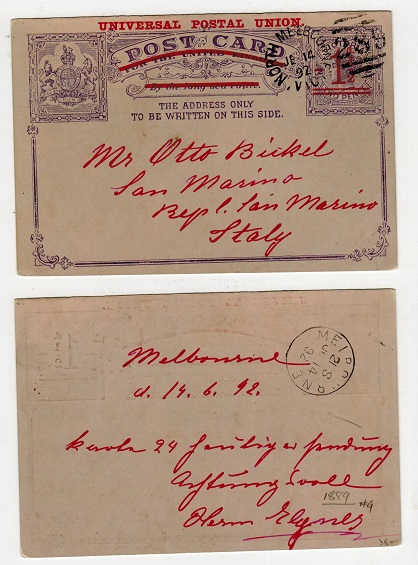 UNIVERSAL POSTAL UNION.
POST CARD
FOR THE UNITED
By the long sea route
THE ADDRESS ONLY
TO BE WRITTEN ON THIS SIDE.
NORTH MELBO
JE 14
92
VIC
Mr Otto Bickel
San Marino
Repl. San Marino
Italy
Melbourne
d. 14. 6. 92.
MELBOURNE
14
92
24 heutiger Sendung
Achtungsvoll
1889
#9